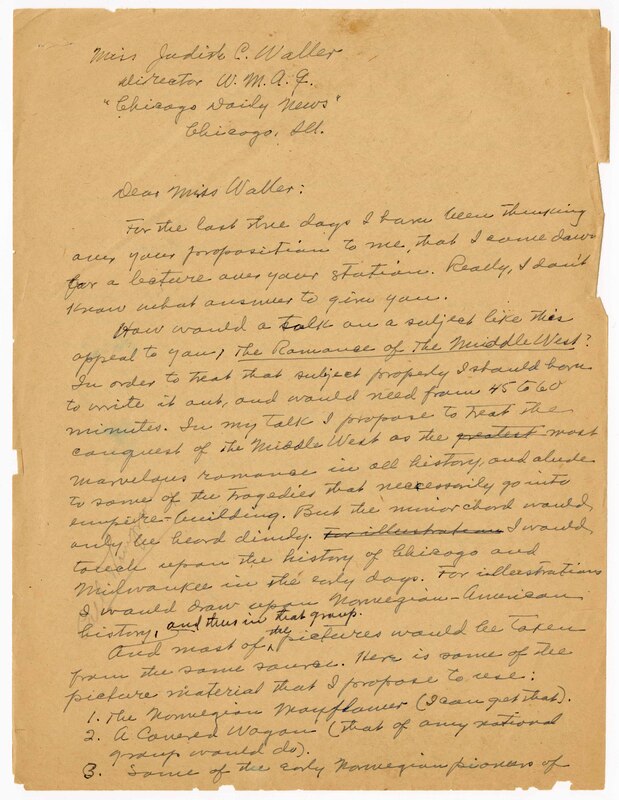 Miss Judith C. Waller
Director W. M. A. Q.
"Chicago Daily News"
Chicago, Ill.
Dear Miss Waller:
For the last three days I have been thinking
over your proposition to me, that I come down
for a lecture over your station. Really, I don't
know what answer to give you.
How would a talk on a subject like this
appeal to you, The Romance of the Middle West?
In order to treat that subject properly I should have
to write it out, and would need from 45 to 60
minutes. In my talk I propose to treat the
conquest of the Middle West as the greatest most
marvelous romance in all history, and allude
to some of the tragedies that necessarily go into
empire-building. But the minor chord would
only be heard dimly. For illustration I would
touch upon the history of Chicago and
Milwaukee in the early days. For illustrations
I would draw upon Norwegian-American
history, and thus in that group.
And most of the pictures would be taken
from the same source. Here is some of the
picture material that I propose to use:
1. The Norwegian Mayflower (I can get that).
2. A Covered Wagon (that of any national
group would do).
3. Some of the early Norwegian pioneers of